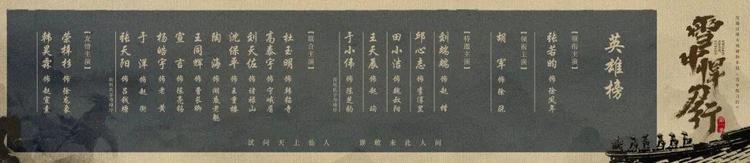 雪中悍刀行
英雄榜
【领衔主演】
张若昀 饰 徐凤年
【领衔主演】
胡军 饰 徐骁
【特邀主演】
刘端端 饰 赵楷
邱心志 饰 李淳罡
田小洁 饰 魏叔阳
王天辰 饰 赵珣
于小伟 饰 陈芝豹
【联合主演】
杜玉明 饰 韩貂寺
高泰宇 饰 宁峨眉
刘天佐 饰 褚禄山
沈保平 饰 王重楼
陶海 饰
王同辉 饰 曹长卿
宣言 饰 陈亮锡
杨皓宇 饰 老黄
于洋 饰 赵衡
张天阳 饰 吕钱塘
【友情主演】
荣梓杉 饰 徐龙象
韩昊霖 饰 赵宣素
试问天上仙人
谁敢来此人间